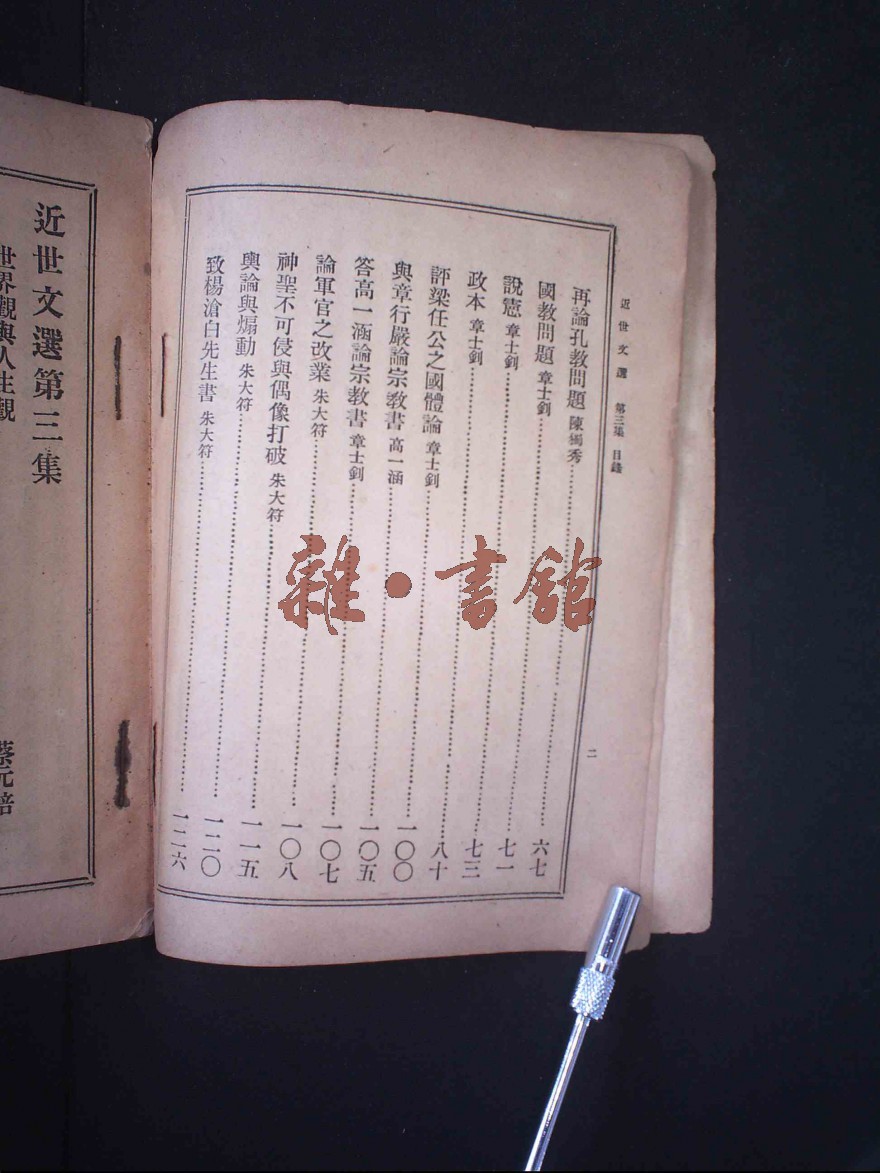 近世文選 第三集 目錄 二
再論孔教問題 陳獨秀……六七
國教問題 章士釗……七一
說憲 章士釗……七三
政本 章士釗……八十
評梁任公之國體論 章士釗……一〇〇
與章行嚴論宗教書 高一涵……一〇五
答高一涵論宗教書 章士釗……一〇七
論軍官之改業 朱大符……一〇八
神聖不可侵與偶像打破 朱大符……一一五
輿論與煽動 朱大符……一二〇
致楊滄白先生書 朱大符……一二六
近世文選第三集
世界觀與人生觀 蔡元培
雜·書館